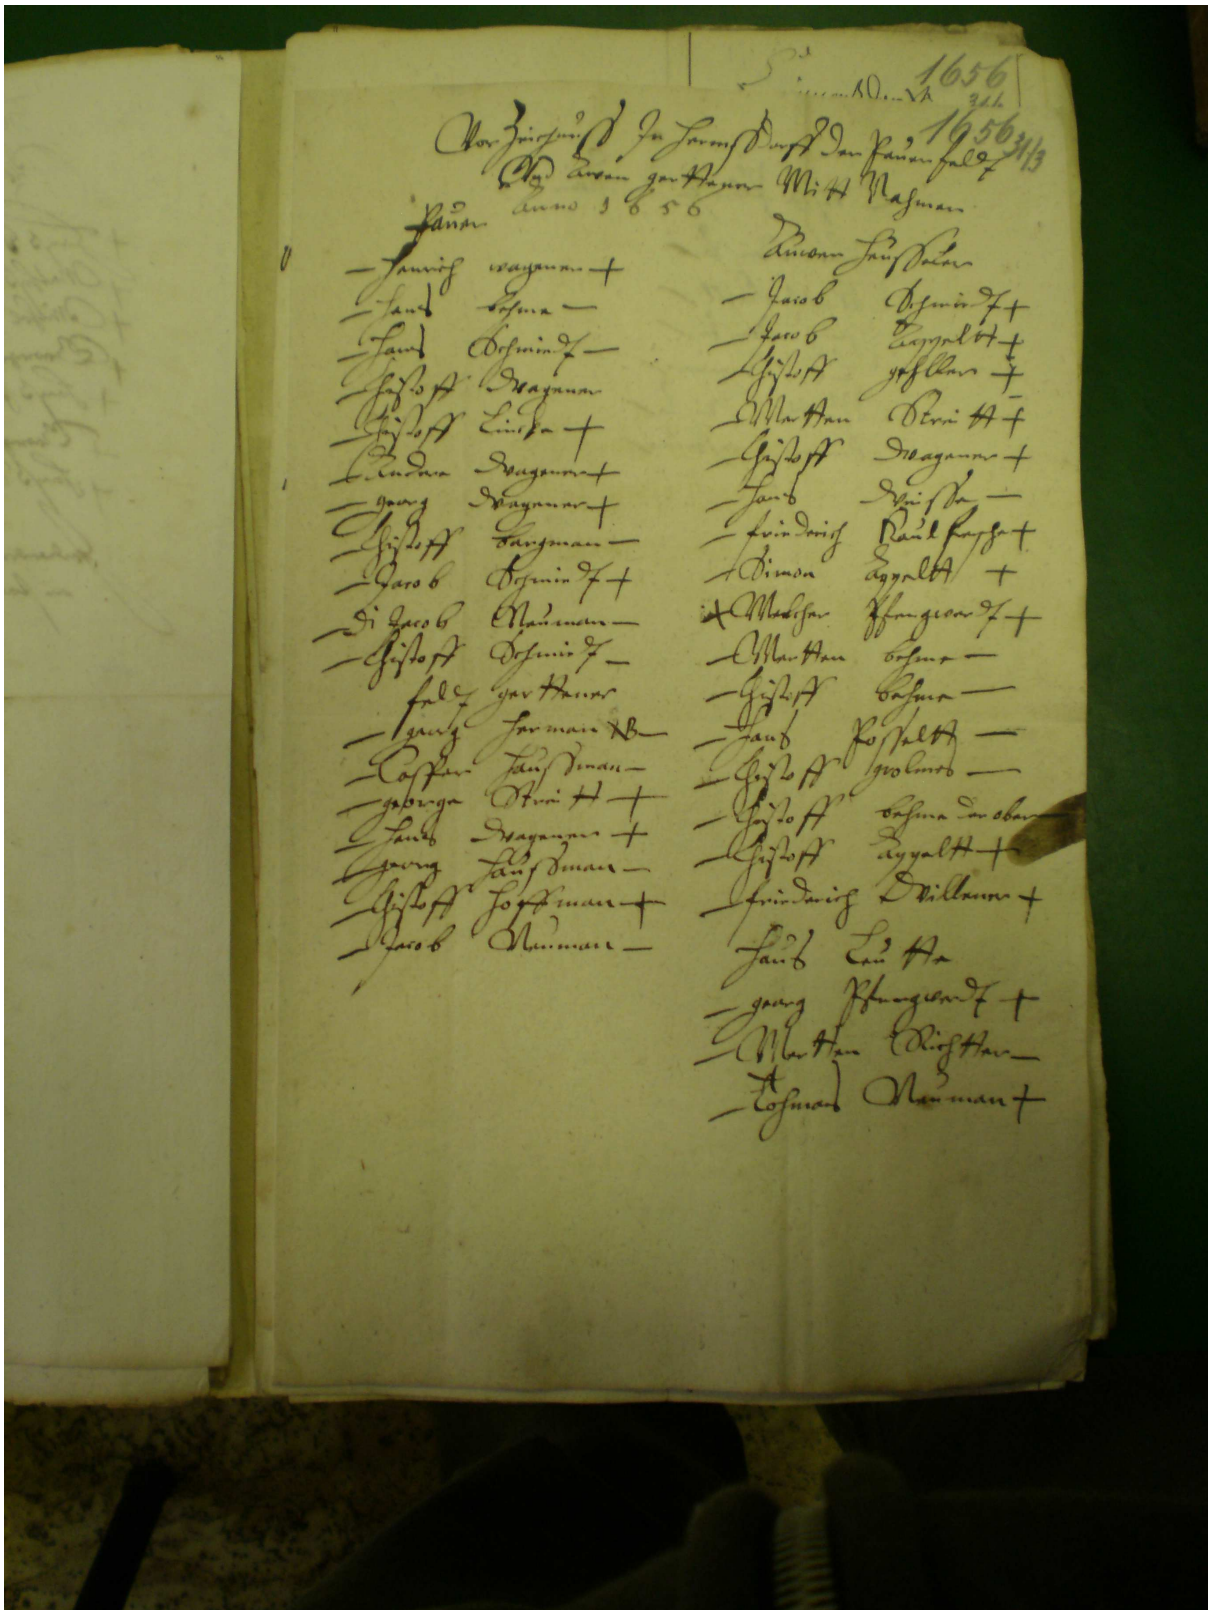 1656
1656
Vor Zeichnuss In Hermssdorff der Pauer feldt
Vnd Auen gerttener Mitt Nahmen
Anno 1656
Pauer
– Henrich wagener +
– Hans behme –
– Hans Schmiedt –
– Christoff Wagener
– Christoff Lincke +
– Andere Wagener +
– georg Wagener +
– Christoff bergman –
– Jacob Schmiedt +
– Di Jacob Neuman –
– Christoff Schmiedt –
feldt gerttener
– georg Herman B –
– Casper Haussman –
– george Streitt +
– Hans Wagener +
– georg Haussman –
– Christoff Hoffman +
– Jacob Neuman –
Auwen Heusseler
– Jacob Schmiedt +
– Jacob Appeltt +
– Christoff +
– Mertten Streitt +
– Christoff Wagener +
– Hans Weisse –
– friederich +
– Simon Appeltt +
+ Melcher Pfengwerdt +
– Mertten behme –
– Christoff behme –
– Hans Posseltt –
– Christoff –
– Christoff behme der ober –
– Christoff Appeltt +
– friederich Willener +
Haus Leutte
– georg Pfengwerdt +
– Mertten Richtter –
– Tohmas Neuman +